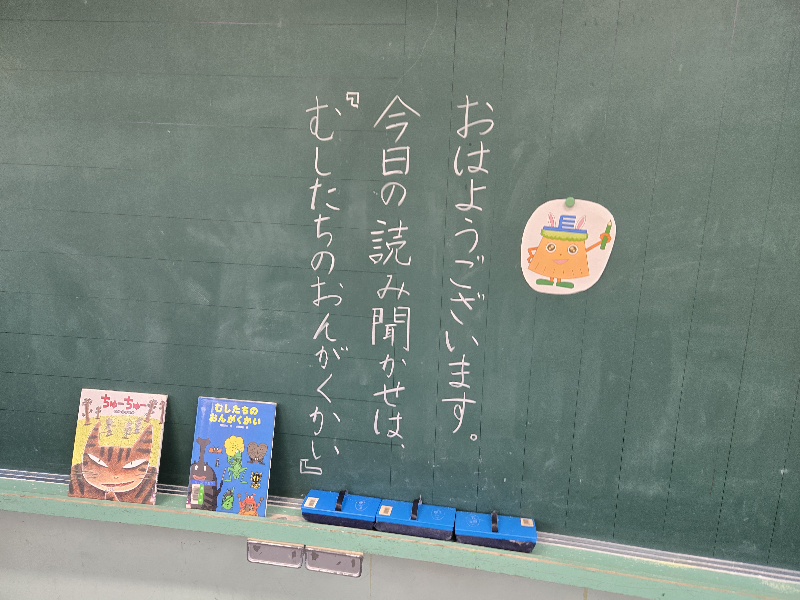 おはようございます。
今日の読み聞かせは、
『むしたちのおんがくかい』
ちゅーちゅー
むしたちの
おんがくかい